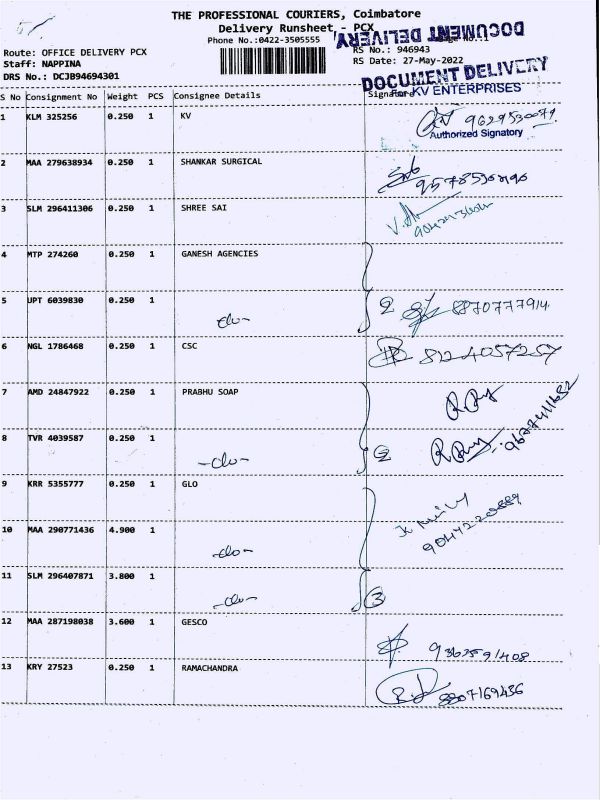 THE PROFESSIONAL COURIERS, Coimbatore
Delivery Runsheet - PCX
Phone No.:0422-3505555
DOCUMENT DELIVERY
Route: OFFICE DELIVERY PCX
Staff: NAPPINA
DRS No.: DCJB94694301
RS No.: 946943
RS Date: 27-May-2022
DOCUMENT DELIVERY
S No Consignment No Weight PCS Consignee Details Signature
For KV ENTERPRISES
1 KLM 325256 0.250 1 KV 9629530079
Authorized Signatory
2 MAA 279638934 0.250 1 SHANKAR SURGICAL
3 SLM 296411306 0.250 1 SHREE SAI
4 MTP 274260 0.250 1 GANESH AGENCIES
5 UPT 6039830 0.250 1 -do- 2 8870777914
6 NGL 1786468 0.250 1 CSC 8124057257
7 AMD 24847922 0.250 1 PRABHU SOAP
8 TVR 4039587 0.250 1 -do- 2
9 KRR 5355777 0.250 1 GLO
10 MAA 290771436 4.900 1 -do-
11 SLM 296407871 3.800 1 -do- 3
12 MAA 287198038 3.600 1 GESCO 9362591408
13 KRY 27523 0.250 1 RAMACHANDRA 8807169436